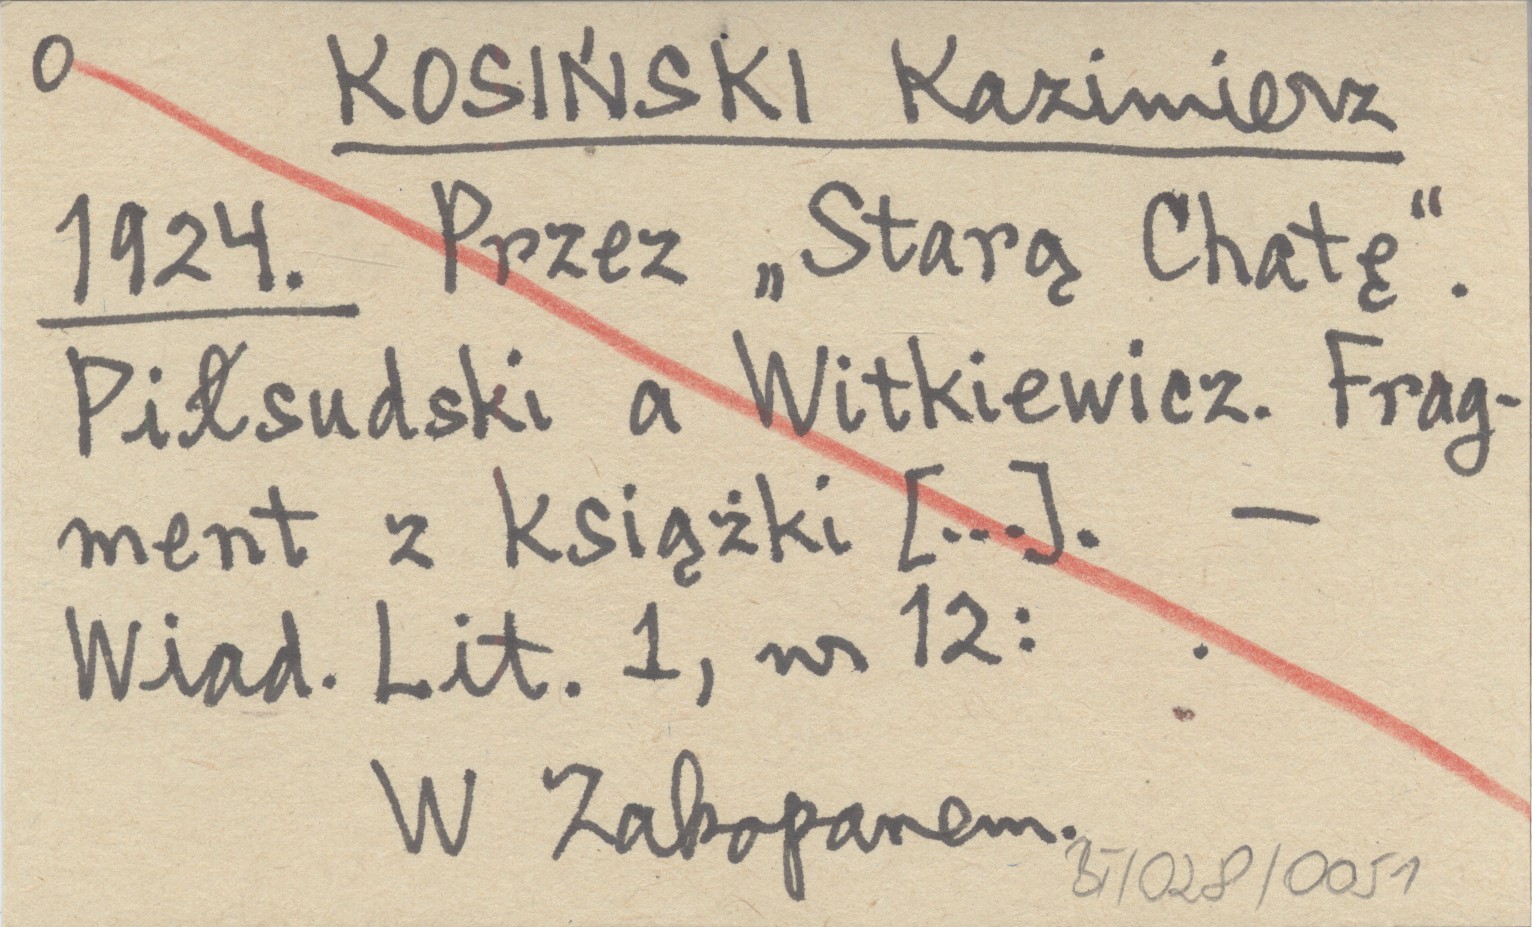 O KOSIŃSKI Kazimierz
1924. Przez „Starą Chatę“.
Piłsudski a Witkiewicz. Frag-
ment z książki [...]. —
Wiad. Lit. 1, nr 12: .
W Zakopanem.
BI/028/0051